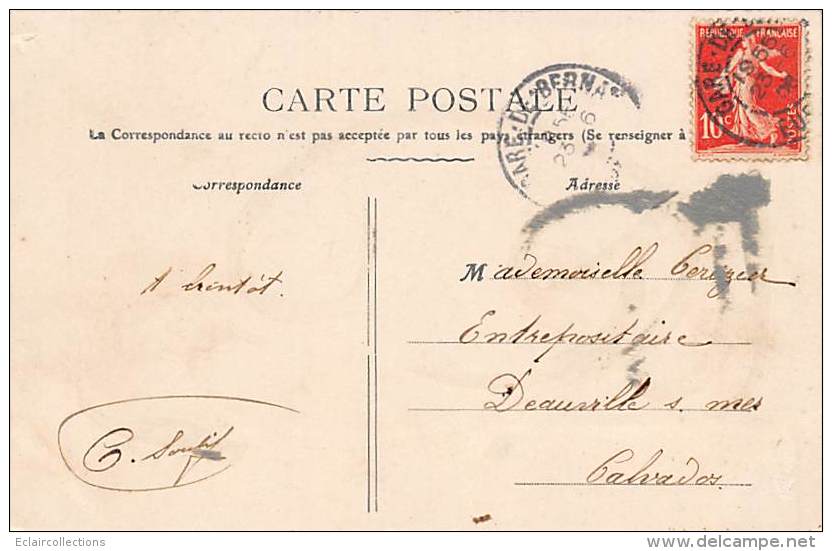 RÉPUBLIQUE FRANÇAISE
10c
POSTES
GARE DE BERNA
CARTE POSTALE
La Correspondance au recto n'est pas acceptée par tous les pays étrangers (Se renseigner à
Correspondance
Adresse
A bientôt.
Mademoiselle
Entrepositaire
Deauville s. mer
Calvados
C.
Eclaircollections
delcampe.net